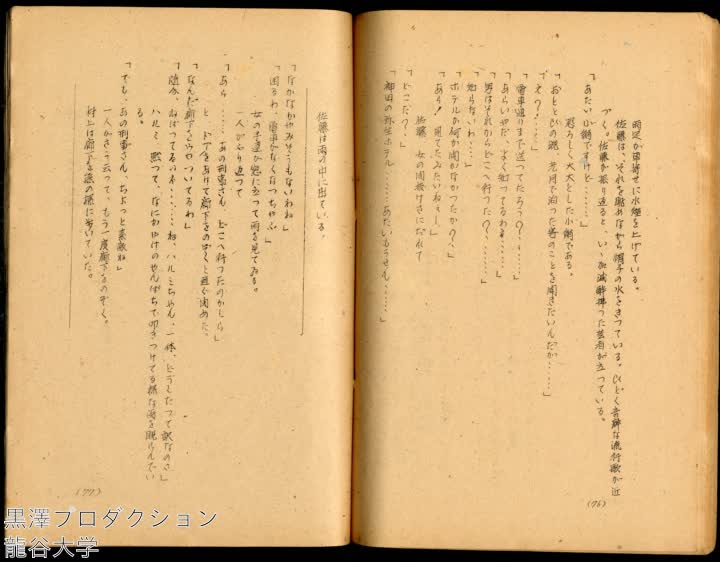 雨足が軍寄せに水煙を上げている。
佐藤は、それを眺めながら帽子の水をきっている。ひどく音痴な流行歌が近
づく。佐藤が振り返ると、いゝ加減酔拂った芸者が立っている。
「あたい小鶴ですけど……」
恐ろしく大々とした小鶴である。
「おとゝひの晩 光月で泊った客のことを聞きたいんだが……」
「え？!……」
「電車通りまで送ってたろう？……」
「あらいやだ、よく知ってるわね……」
「男はそれからどこへ行った？……」
「知らないわ……」
「ホテルか何か聞かなかったか？」
「あり！ 見てたみたいねぇ！」
佐藤 女の間抜けさになれて
「どこだ？」
「神田の弥生ホテル……あたいもうせん……」
(76)
佐藤は雨の中に出ている。
「なかなかやみそうもないわね」
「困るわ、電車がなくなっちゃふ」
女の子達が窓に立って雨を見てゐる。
一人がふり返って
「あら……あの刑事さん、どこへ行ったのかしら」
と ドアをあけて廊下をのぞくと直ぐ閉めた。
「なんだ廊下をウロついてるわ」
「随分、ねばってるわね……ね、ハルミちゃん、一体、どうしたって訳なのさ」
ハルミ、黙って、なにかやけのやんぱちで叩きつけてる様な雨を睨らんでい
る。
「でも、あの刑事さん、ちょっと素敵ね」
一人がさう云って、もう一度廊下をのぞく。
村上は廊下を狼の様に歩いていた。
(77)
黒澤プロダクション
龍谷大学